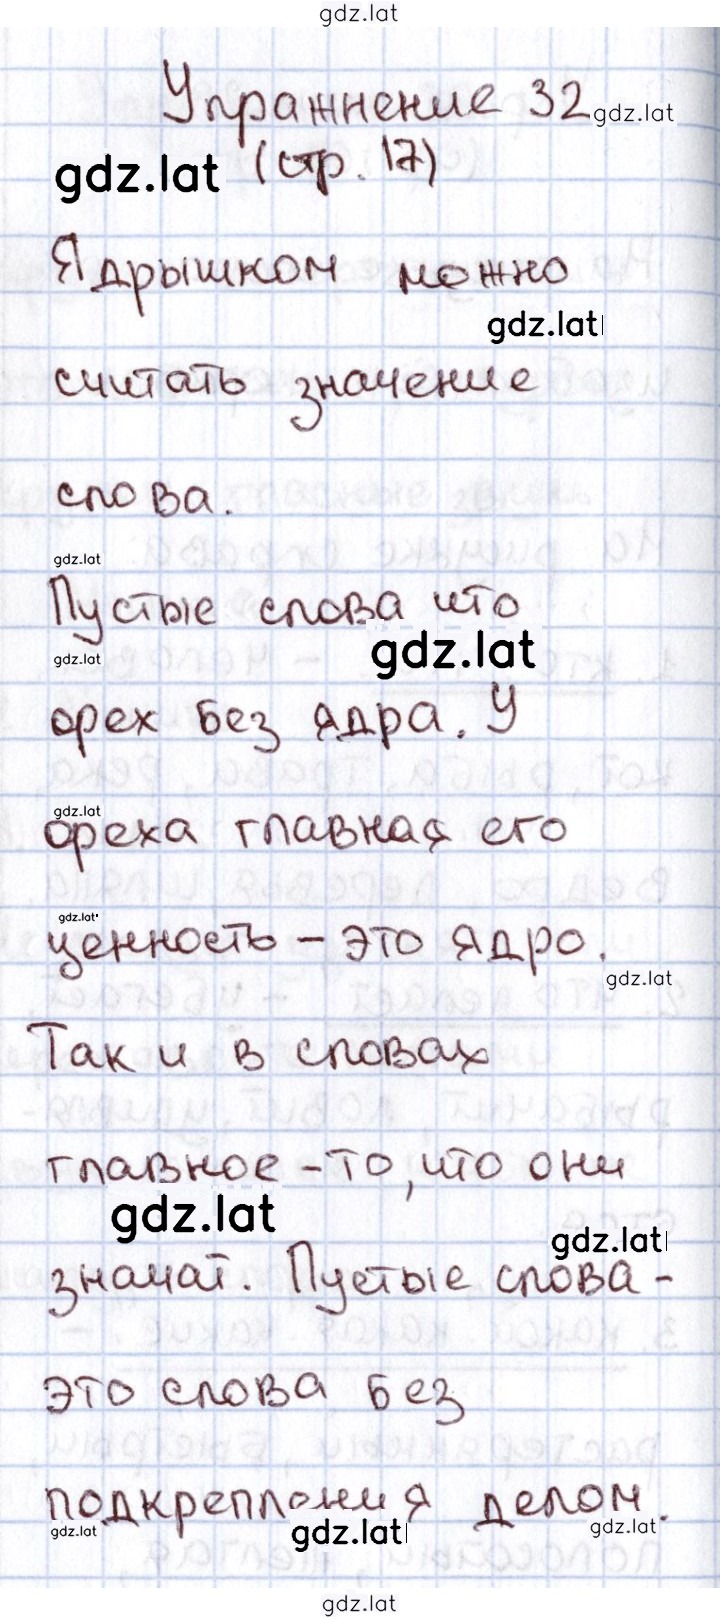 gdz.lat
Упражнение 32
gdz.lat
gdz.lat
(стр. 17)
Ядрышком можно
gdz.lat
считать значение
слова.
gdz.lat
Пустые слова что
gdz.lat
gdz.lat
орех без ядра. У
gdz.lat
ореха главная его
gdz.lat
ценность – это ядро.
gdz.lat
Так и в словах
главное – то, что они
gdz.lat
gdz.lat
значат. Пустые слова –
это слова без
подкрепления делом.
gdz.lat
gdz.lat
gdz.lat
gdz.lat